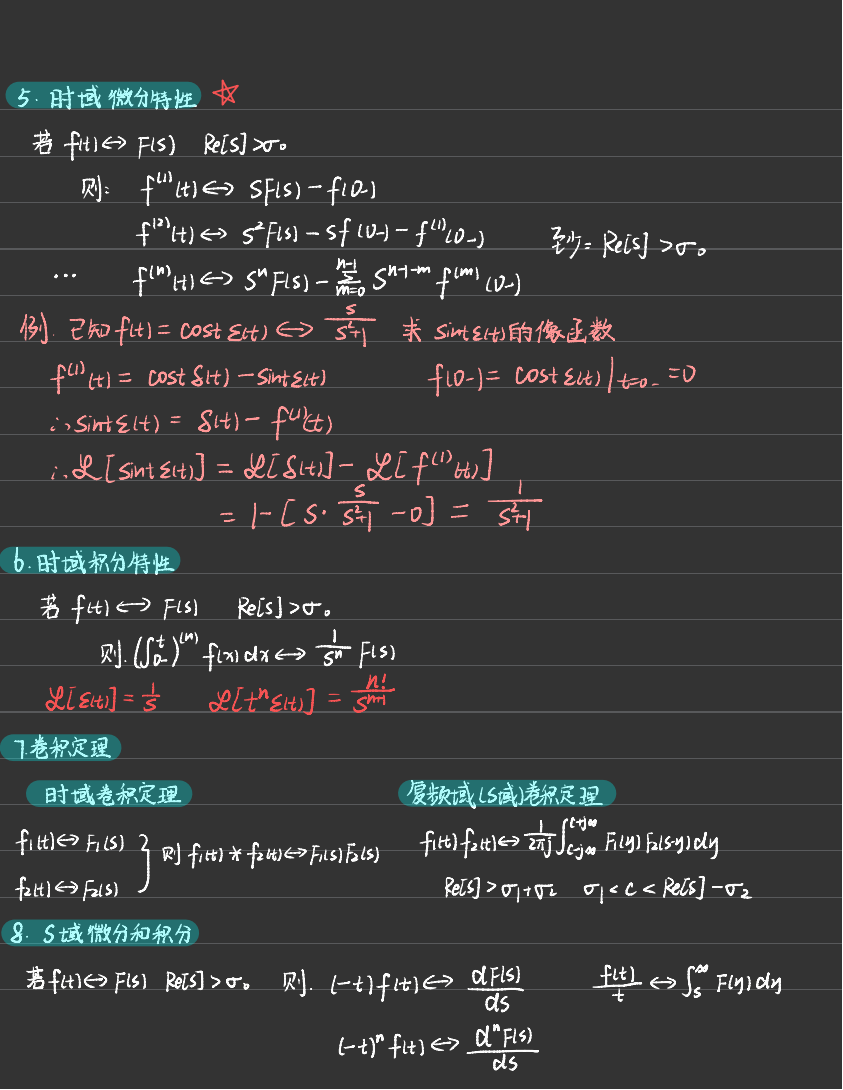 5. 时域微分特性 ☆
若 f(t) ↔ F(s) Re[s] > σ₀
则: f⁽¹⁾(t) ↔ sF(s) − f(0₋)
f⁽²⁾(t) ↔ s²F(s) − sf(0₋) − f⁽¹⁾(0₋) 至少 = Re[s] > σ₀
... f⁽ⁿ⁾(t) ↔ sⁿF(s) − ∑_{m=0}^{n-1} s^{n-1-m} f⁽ᵐ⁾(0₋)
例. 已知 f(t) = cost ε(t) ↔ s/(s²+1) 求 sint ε(t) 的像函数
f⁽¹⁾(t) = cost δ(t) − sint ε(t) f(0₋) = cost ε(t)|_{t=0₋} = 0
∴ sint ε(t) = δ(t) − f⁽¹⁾(t)
∴ ℒ[sint ε(t)] = ℒ[δ(t)] − ℒ[f⁽¹⁾(t)]
= 1 − [s · s/(s²+1) − 0] = 1/(s²+1)
6. 时域积分特性
若 f(t) ↔ F(s) Re[s] > σ₀
则. (∫_{0₋}^{t})⁽ⁿ⁾ f(x) dx ↔ 1/sⁿ F(s)
ℒ[ε(t)] = 1/s ℒ[tⁿε(t)] = n!/s^{n+1}
7. 卷积定理
时域卷积定理 复频域(S域)卷积定理
f₁(t) ↔ F₁(s) } 则 f₁(t) * f₂(t) ↔ F₁(s)F₂(s) f₁(t)f₂(t) ↔ 1/(2πj) ∫_{c-j∞}^{c+j∞} F₁(η)F₂(s-η)dη
f₂(t) ↔ F₂(s) Re[s] > σ₁+σ₂ σ₁ < c < Re[s] − σ₂
8. S域微分和积分
若 f(t) ↔ F(s) Re[s] > σ₀ 则. (−t)f(t) ↔ dF(s)/ds f(t)/t ↔ ∫_{s}^{∞} F(η)dη
(−t)ⁿ f(t) ↔ dⁿF(s)/ds